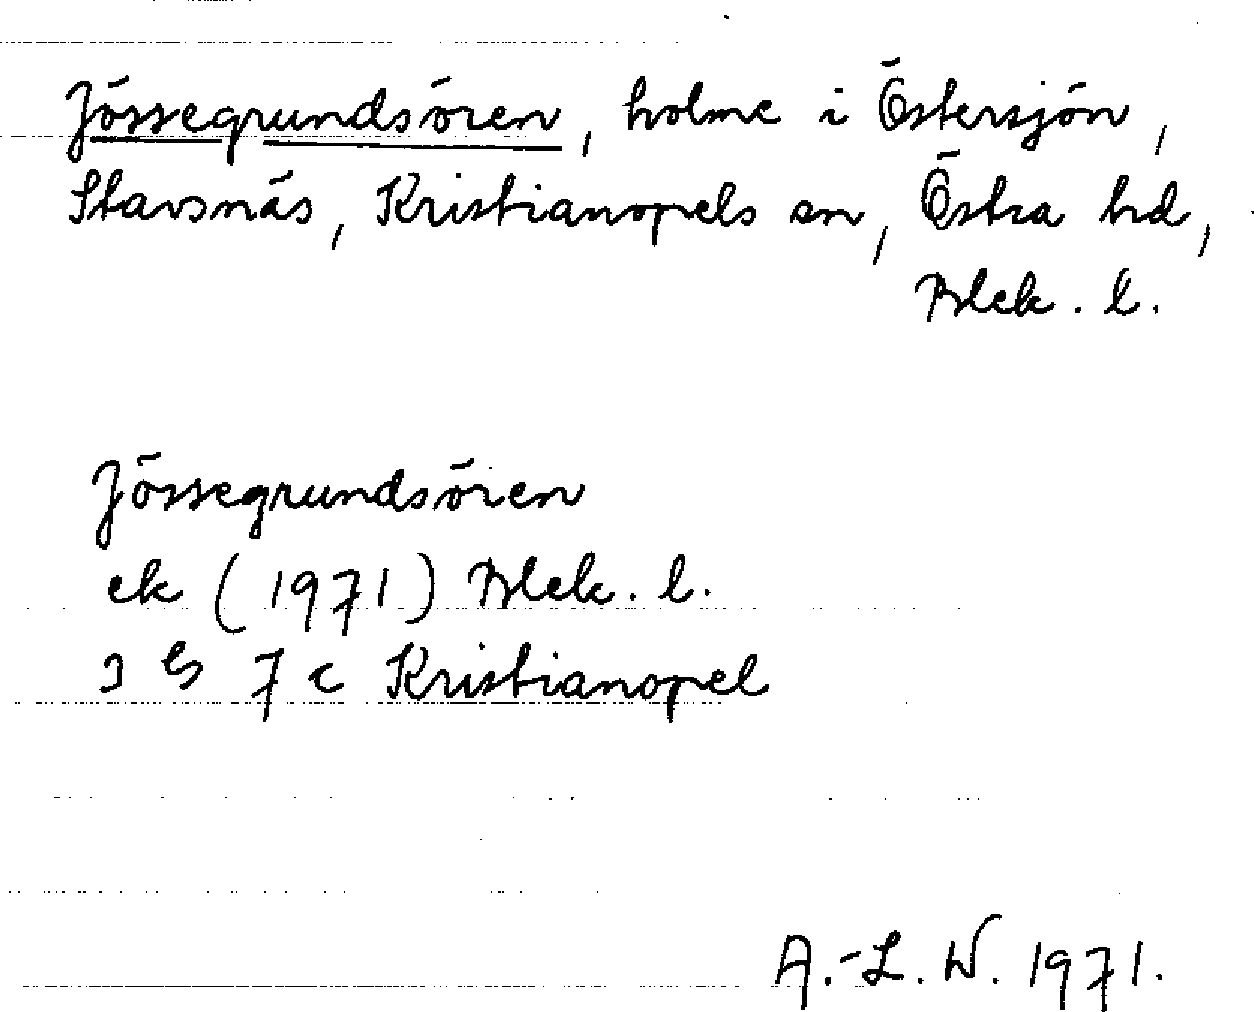 Jössegrundsören, holme i Östersjön,
Stavsnäs, Kristianopels sn, Östra hd,
Blek. l.
Jössegrundsören
ek (1971) Blek. l.
3 G 7 c Kristianopel
A.-L. W. 1971.